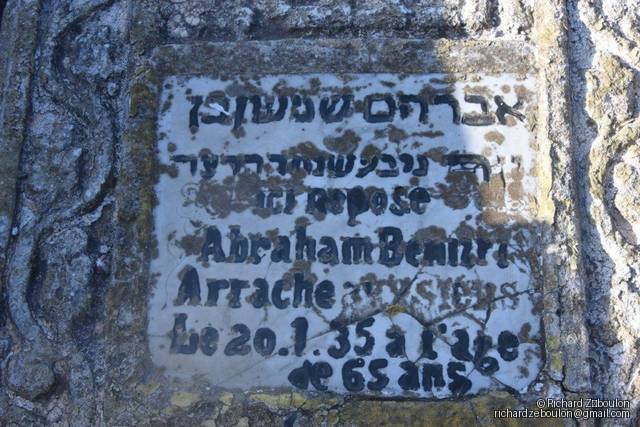 אברהם שמשון בן
Ici Repose
Abraham Benizri
Arrache
Le 20.1.35 à l'age
de 65 ans
© Richard Zeboulon
richardzeboulon@gmail.com